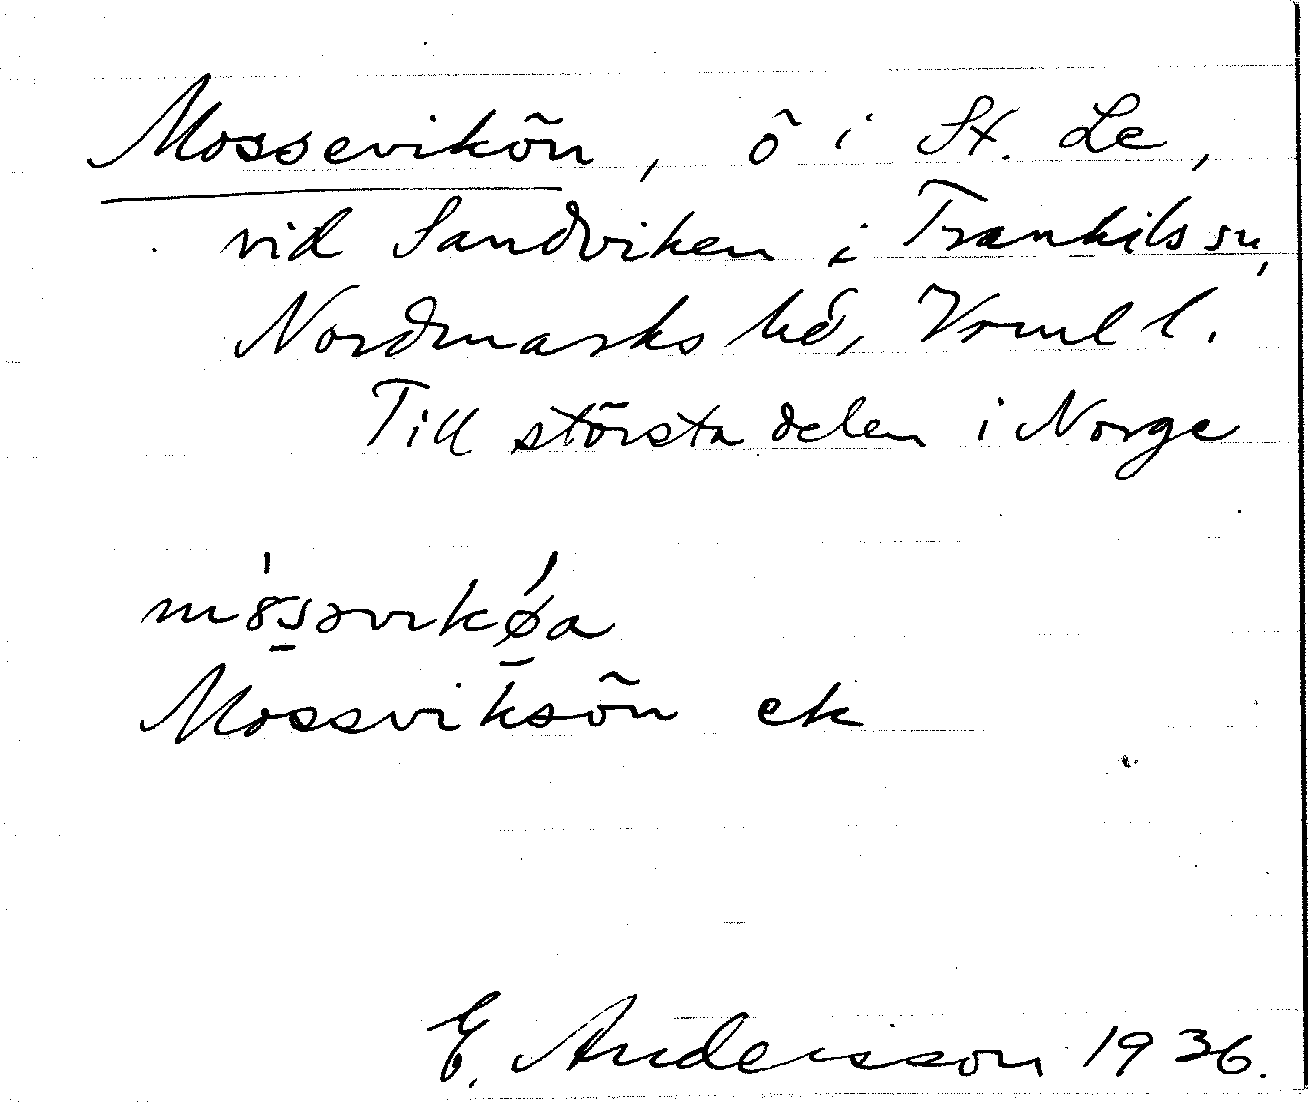 Mossevikön, ö i St. Le,
vid Sandviken i Trankils sn,
Nordmarks hd, Vrml l.
Till största delen i Norge
mȯsəvikǿa
Mossviksön ek
E. Andersson 1936.